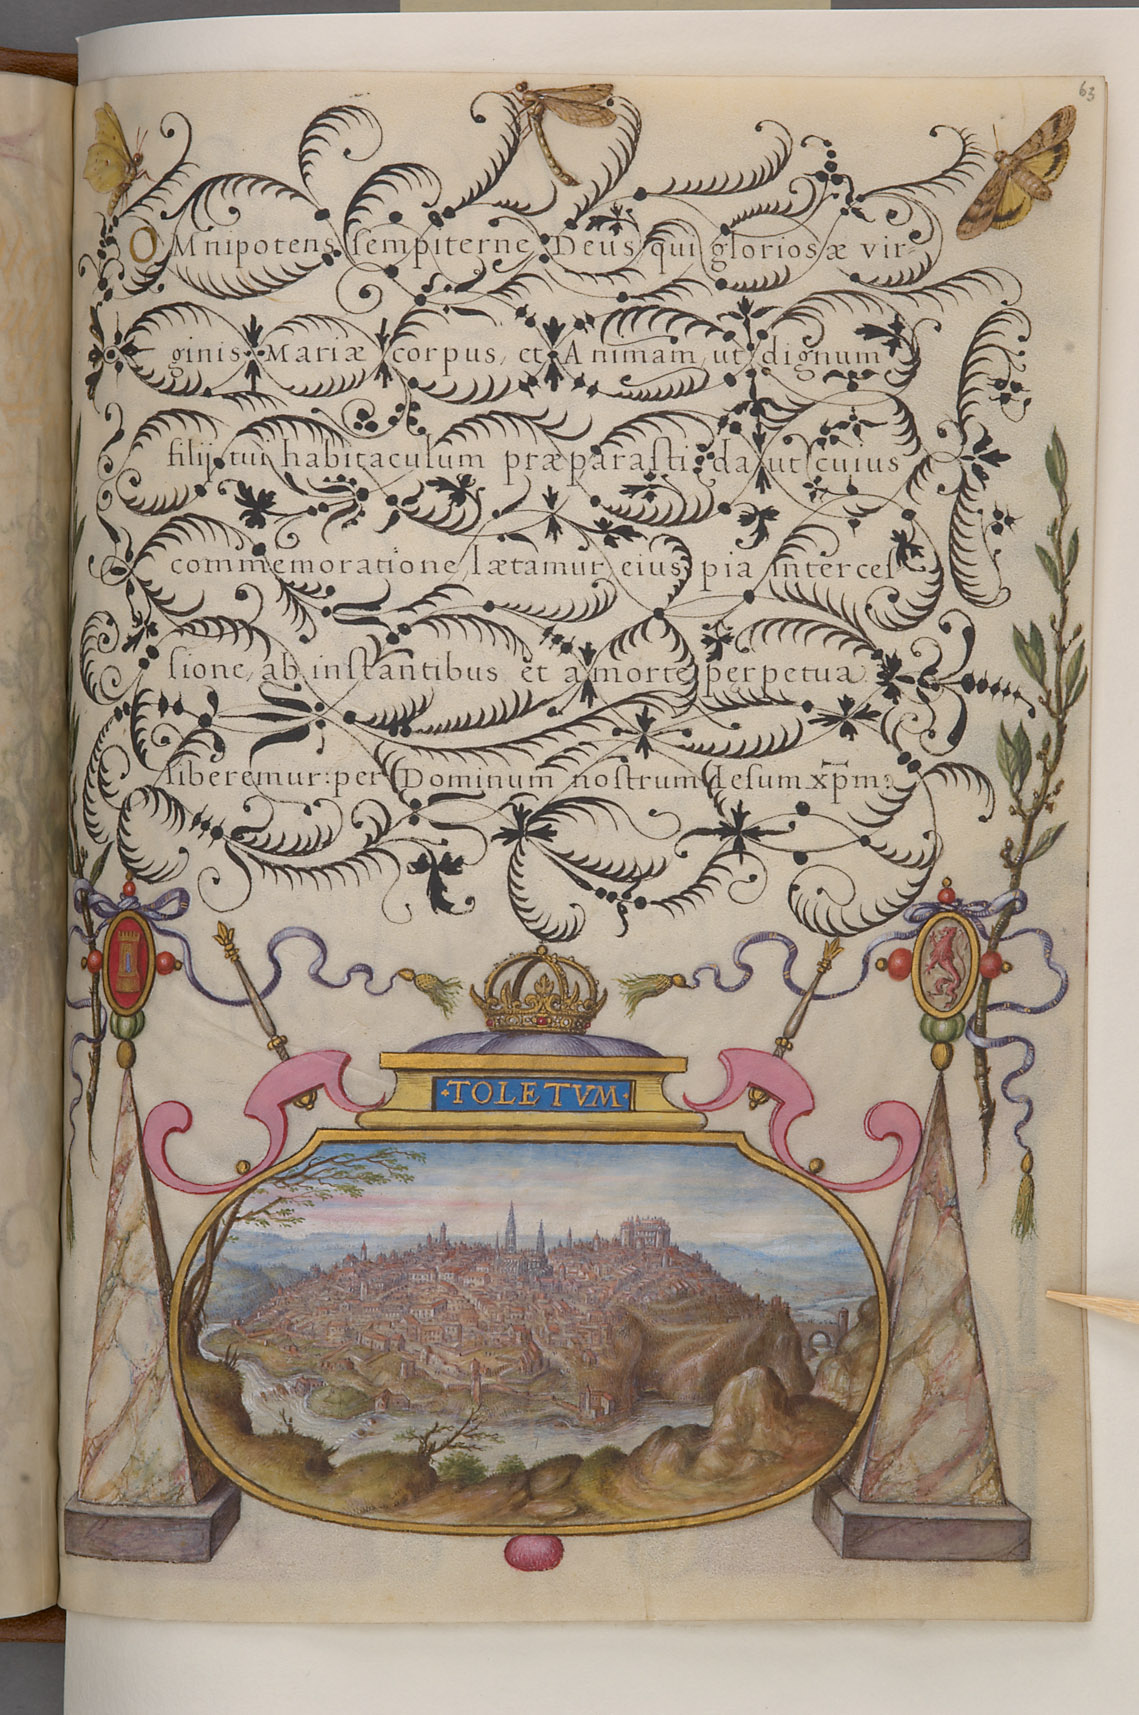 63
OMnipotens sempiterne Deus qui gloriosæ vir-
ginis Mariæ corpus, et Animam, ut dignum
filij tui habitaculum præparasti: da ut cuius
commemoratione lætamur eius pia interces
sione, ab instantibus et a morte perpetua
liberemur: per Dominum nostrum Iesum xp̄m:
·TOLETVM·